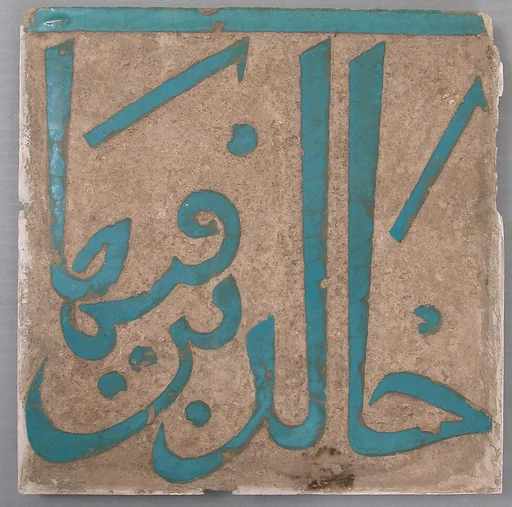 خالدين فيها